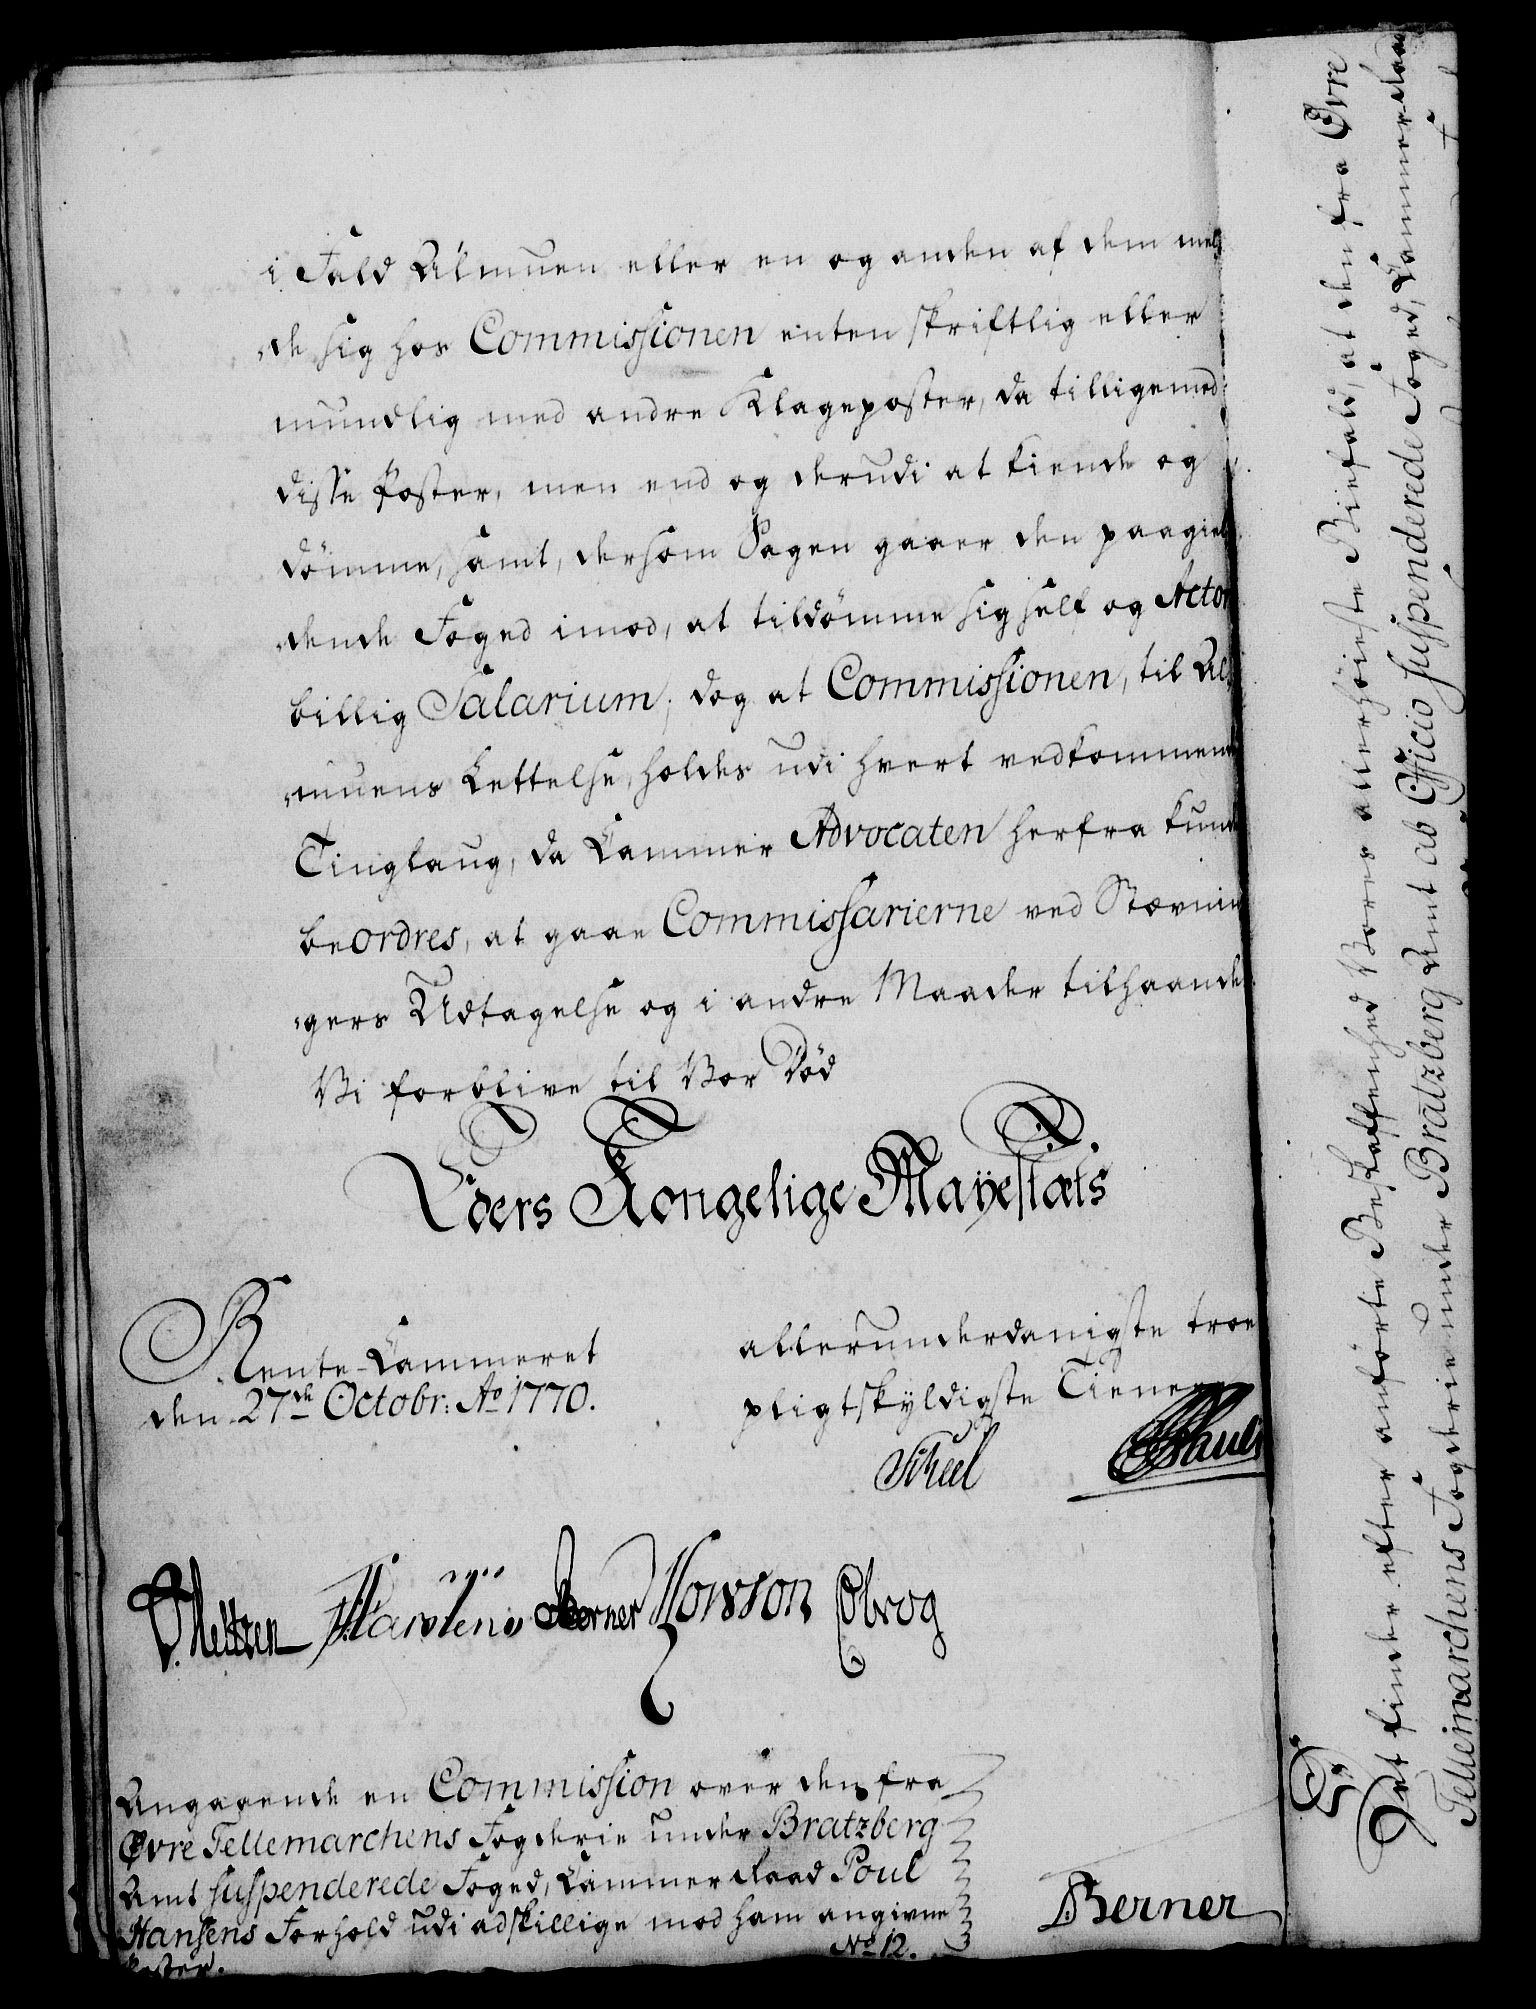 i Fald Almuen eller en og anden af dem mel-
de sig hos Commissionen enten skriftlig eller
mundlig med andre Klageposter, da tilligemed
disse Poster, men end og derudi at kiende og
dömme, samt, dersom Sagen gaaer den paagiel
dende Foged imod, at tildömme sig self og Actor
billig Salarium; dog at Commissionen, til Al-
muens Lettelse, holdes udi hvert vedkommende
Tinglaug, da Cammer Advocaten herfra kunde
beordres, at gaae Commissarierne ved Stævnin
gers Udtagelse og i andre Maader tilhaande.
Vi forblive til Vor Död
Eders Kongelige Mayestæts
Rente-Cammeret
den 27de Octobr: Ao 1770.
allerunderdanigste troe
pligtskyldigste Tienere
Scheel
Berner Howson Obrog
Angaaende en Commission over den fra
Övre Tellemarchens Fogderie under Bratzberg
Amt suspenderede Foged, Cammer Raad Poul
Hansens Forhold udi adskillige mod ham angivne
Poster.
No 12.
Berner
Det finder efter anförte Beskaffenhed Vores allerhöieste Biefald, at den fra Övre
Tellemarchens Fogderie under Bratzberg Amt ab Officio suspenderede Foged, Cammer Raad